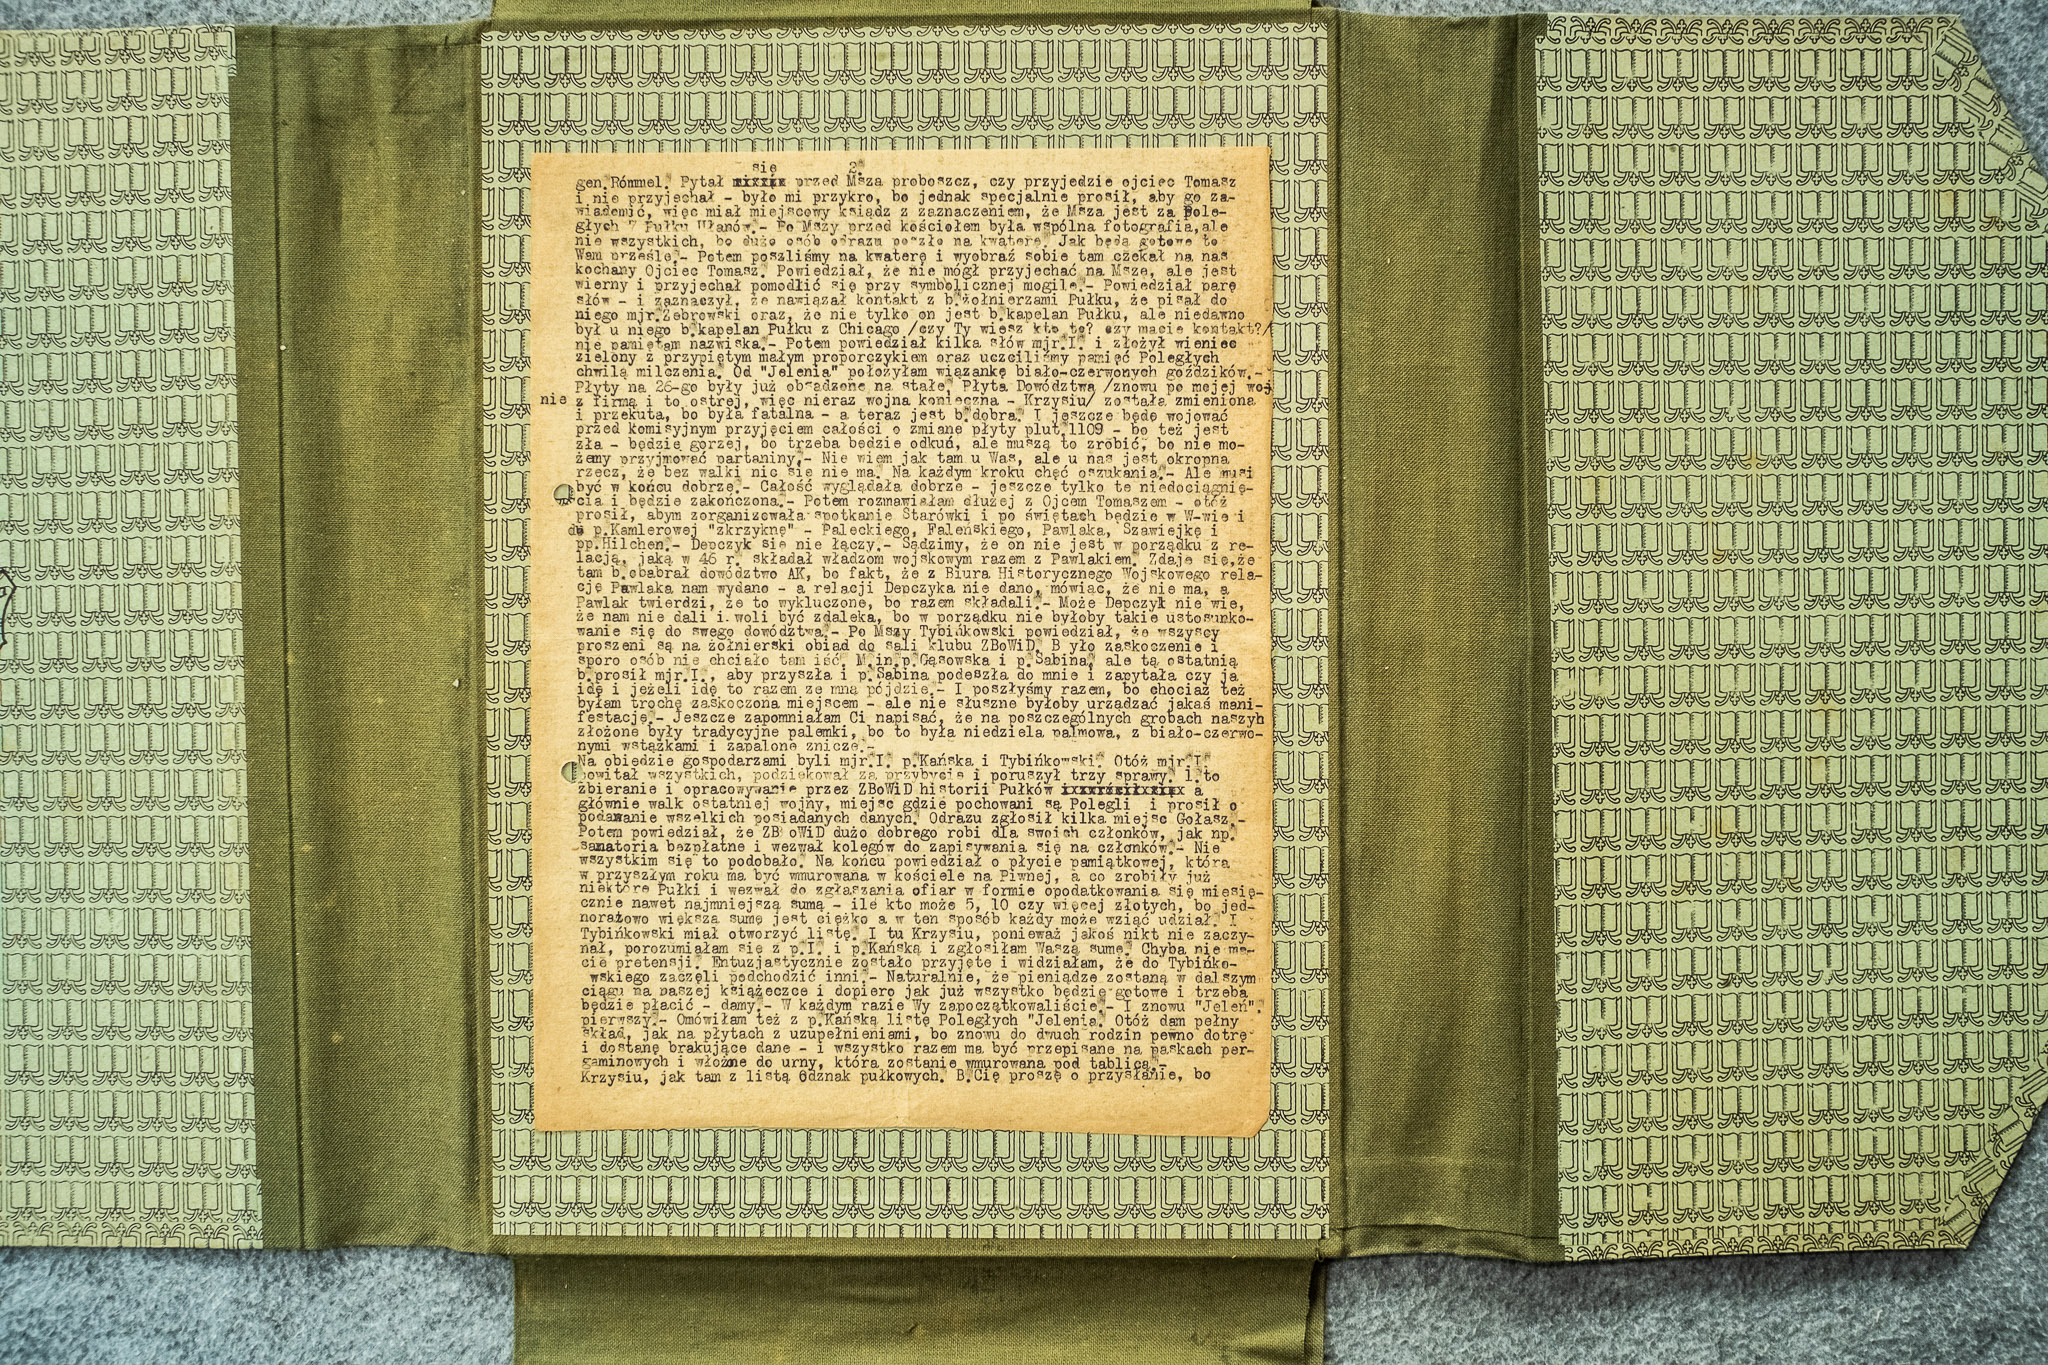 się 2.
gen.Rómmel. Pytał xixxxx przed Msza proboszcz, czy przyjedzie ojciec Tomasz
i nie przyjechał - było mi przykro, bo jednak specjalnie prosił, aby go za-
wiadomić, więc miał miejscowy ksiądz z zaznaczeniem, że Msza jest za Pole-
głych 7 Pułku Ułanów.- Po Mszy przed kościołem była wspólna fotografia,ale
nie wszystkich, bo dużo osób odrazu poszło na kwaterę. Jak będą gotowe to
Wam prześlę.- Potem poszliśmy na kwaterę i wyobraź sobie tam czekał na nas
kochany Ojciec Tomasz. Powiedział, że nie mógł przyjechać na Mszę, ale jest
wierny i przyjechał pomodlić się przy symbolicznej mogile.- Powiedział parę
słów - i zaznaczył, że nawiązał kontakt z b.żołnierzami Pułku, że pisał do
niego mjr.Żebrowski oraz, że nie tylko on jest b.kapelan Pułku, ale niedawno
był u niego b.kapelan Pułku z Chicago /czy Ty wiesz kto to? czy macie kontakt?/
nie pamiętam nazwiska.- Potem powiedział kilka słów mjr.I. i złożył wieniec
zielony z przypiętym małym proporczykiem oraz uczciliśmy pamięć Poległych
chwilą milczenia. Od "Jelenia" położyłam wiązankę biało-czerwonych goździków.-
Płyty na 26-go były już obsadzone na stałe. Płyta Dowództwa /znowu po mojej woj
nie z firmą i to ostrej, więc nieraz wojna konieczna - Krzysiu/ została zmieniona
i przekuta, bo była fatalna - a teraz jest b.dobra. I jeszcze będę wojować
przed komisyjnym przyjęciem całości o zmianę płyty plut.1109 - bo też jest
zła - będzie gorzej, bo trzeba będzie odkuń, ale muszą to zrobić, bo nie mo-
żemy przyjmować partaniny.- Nie wiem jak tam u Was, ale u nas jest okropna
rzecz, że bez walki nic się nie ma. Na każdym kroku chęć oszukania.- Ale musi
być w końcu dobrze.- Całość wyglądała dobrze - jeszcze tylko te niedociągnię-
cia i będzie zakończona.- Potem rozmawiałam dłużej z Ojcem Tomaszem - otóż
prosił, abym zorganizowała spotkanie Starówki i po świętach będzie w W-wie i
do p.Kamlerowej "zkrzyknę" - Paleckiego, Faleńskiego, Pawlaka, Szawiejkę i
pp.Hilchen.- Depczyk się nie łączy.- Sądzimy, że on nie jest w porządku z re-
lacją, jaką w 46 r. składał władzom wojskowym razem z Pawlakiem. Zdaje się,że
tam b.obabrał dowództwo AK, bo fakt, że z Biura Historycznego Wojskowego rela-
cję Pawlaka nam wydano - a relacji Depczyka nie dano, mówiąc, że nie ma, a
Pawlak twierdzi, że to wykluczone, bo razem składali.- Może Depczyk nie wie,
że nam nie dali i woli być zdaleka, bo w porządku nie byłoby takie ustosunko-
wanie się do swego dowództwa.- Po Mszy Tybińkowski powiedział, że wszyscy
proszeni są na żołnierski obiad do sali klubu ZBoWiD. B yło zaskoczenie i
sporo osób nie chciało tam iść. M.in.p.Gąsowska i p.Sabina, ale tą ostatnią
b.prosił mjr.I., aby przyszła i p.Sabina podeszła do mnie i zapytała czy ja
idę i jeżeli idę to razem ze mną pójdzie.- I poszłyśmy razem, bo chociaż też
byłam trochę zaskoczona miejscem - ale nie słuszne byłoby urządzać jakąś mani-
festację.- Jeszcze zapomniałam Ci napisać, że na poszczególnych grobach naszyh
złożone były tradycyjne palemki, bo to była niedziela palmowa, z biało-czerwo-
nymi wstążkami i zapalone znicze.-
Na obiedzie gospodarzami byli mjr.I. p.Kańska i Tybińkowski. Otóż mjr.I.
powitał wszystkich, podziękował za przybycie i poruszył trzy sprawy. i.to
zbieranie i opracowywanie przez ZBoWiD historii Pułków a
głównie walk ostatniej wojny, miejsc gdzie pochowani są Polegli i prosił o
podawanie wszelkich posiadanych danych. Odrazu zgłosił kilka miejsc Gołasz.-
Potem powiedział, że ZB oWiD dużo dobrego robi dla swoich członków, jak np.
sanatoria bezpłatne i wezwał kolegów do zapisywania się na członków.- Nie
wszystkim się to podobało. Na końcu powiedział o płycie pamiątkowej, która
w przyszłym roku ma być wmurowana w kościele na Piwnej, a co zrobiły już
niektóre Pułki i wezwał do zgłaszania ofiar w formie opodatkowania się miesię-
cznie nawet najmniejszą sumą - ile kto może 5, 10 czy więcej złotych, bo jed-
norażowo większą sumę jest ciężko a w ten sposób każdy może wziąć udział. I
Tybińkowski miał otworzyć listę. I tu Krzysiu, ponieważ jakoś nikt nie zaczy-
nał, porozumiałam się z p.I. i p.Kańską i zgłosiłam Waszą sumę. Chyba nie ma-
cie pretensji. Entuzjastycznie zostało przyjęte i widziałam, że do Tybińko-
wskiego zaczęli podchodzić inni.- Naturalnie, że pieniądze zostaną w dalszym
ciągu na naszej książeczce i dopiero jak już wszystko będzie gotowe i trzeba
będzie płacić - damy.- W każdym razie Wy zapoczątkowaliście.- I znowu "Jeleń".
pierwszy.- Omówiłam też z p.Kańską listę Poległych "Jelenia. Otóż dam pełny
skład, jak na płytach z uzupełnieniami, bo znowu do dwuch rodzin pewno dotrę
i dostanę brakujące dane - i wszystko razem ma być przepisane na paskach per-
gaminowych i włożne do urny, która zostanie wmurowana pod tablicą.-
Krzysiu, jak tam z listą Odznak pułkowych. B.Cię proszę o przysłanie, bo